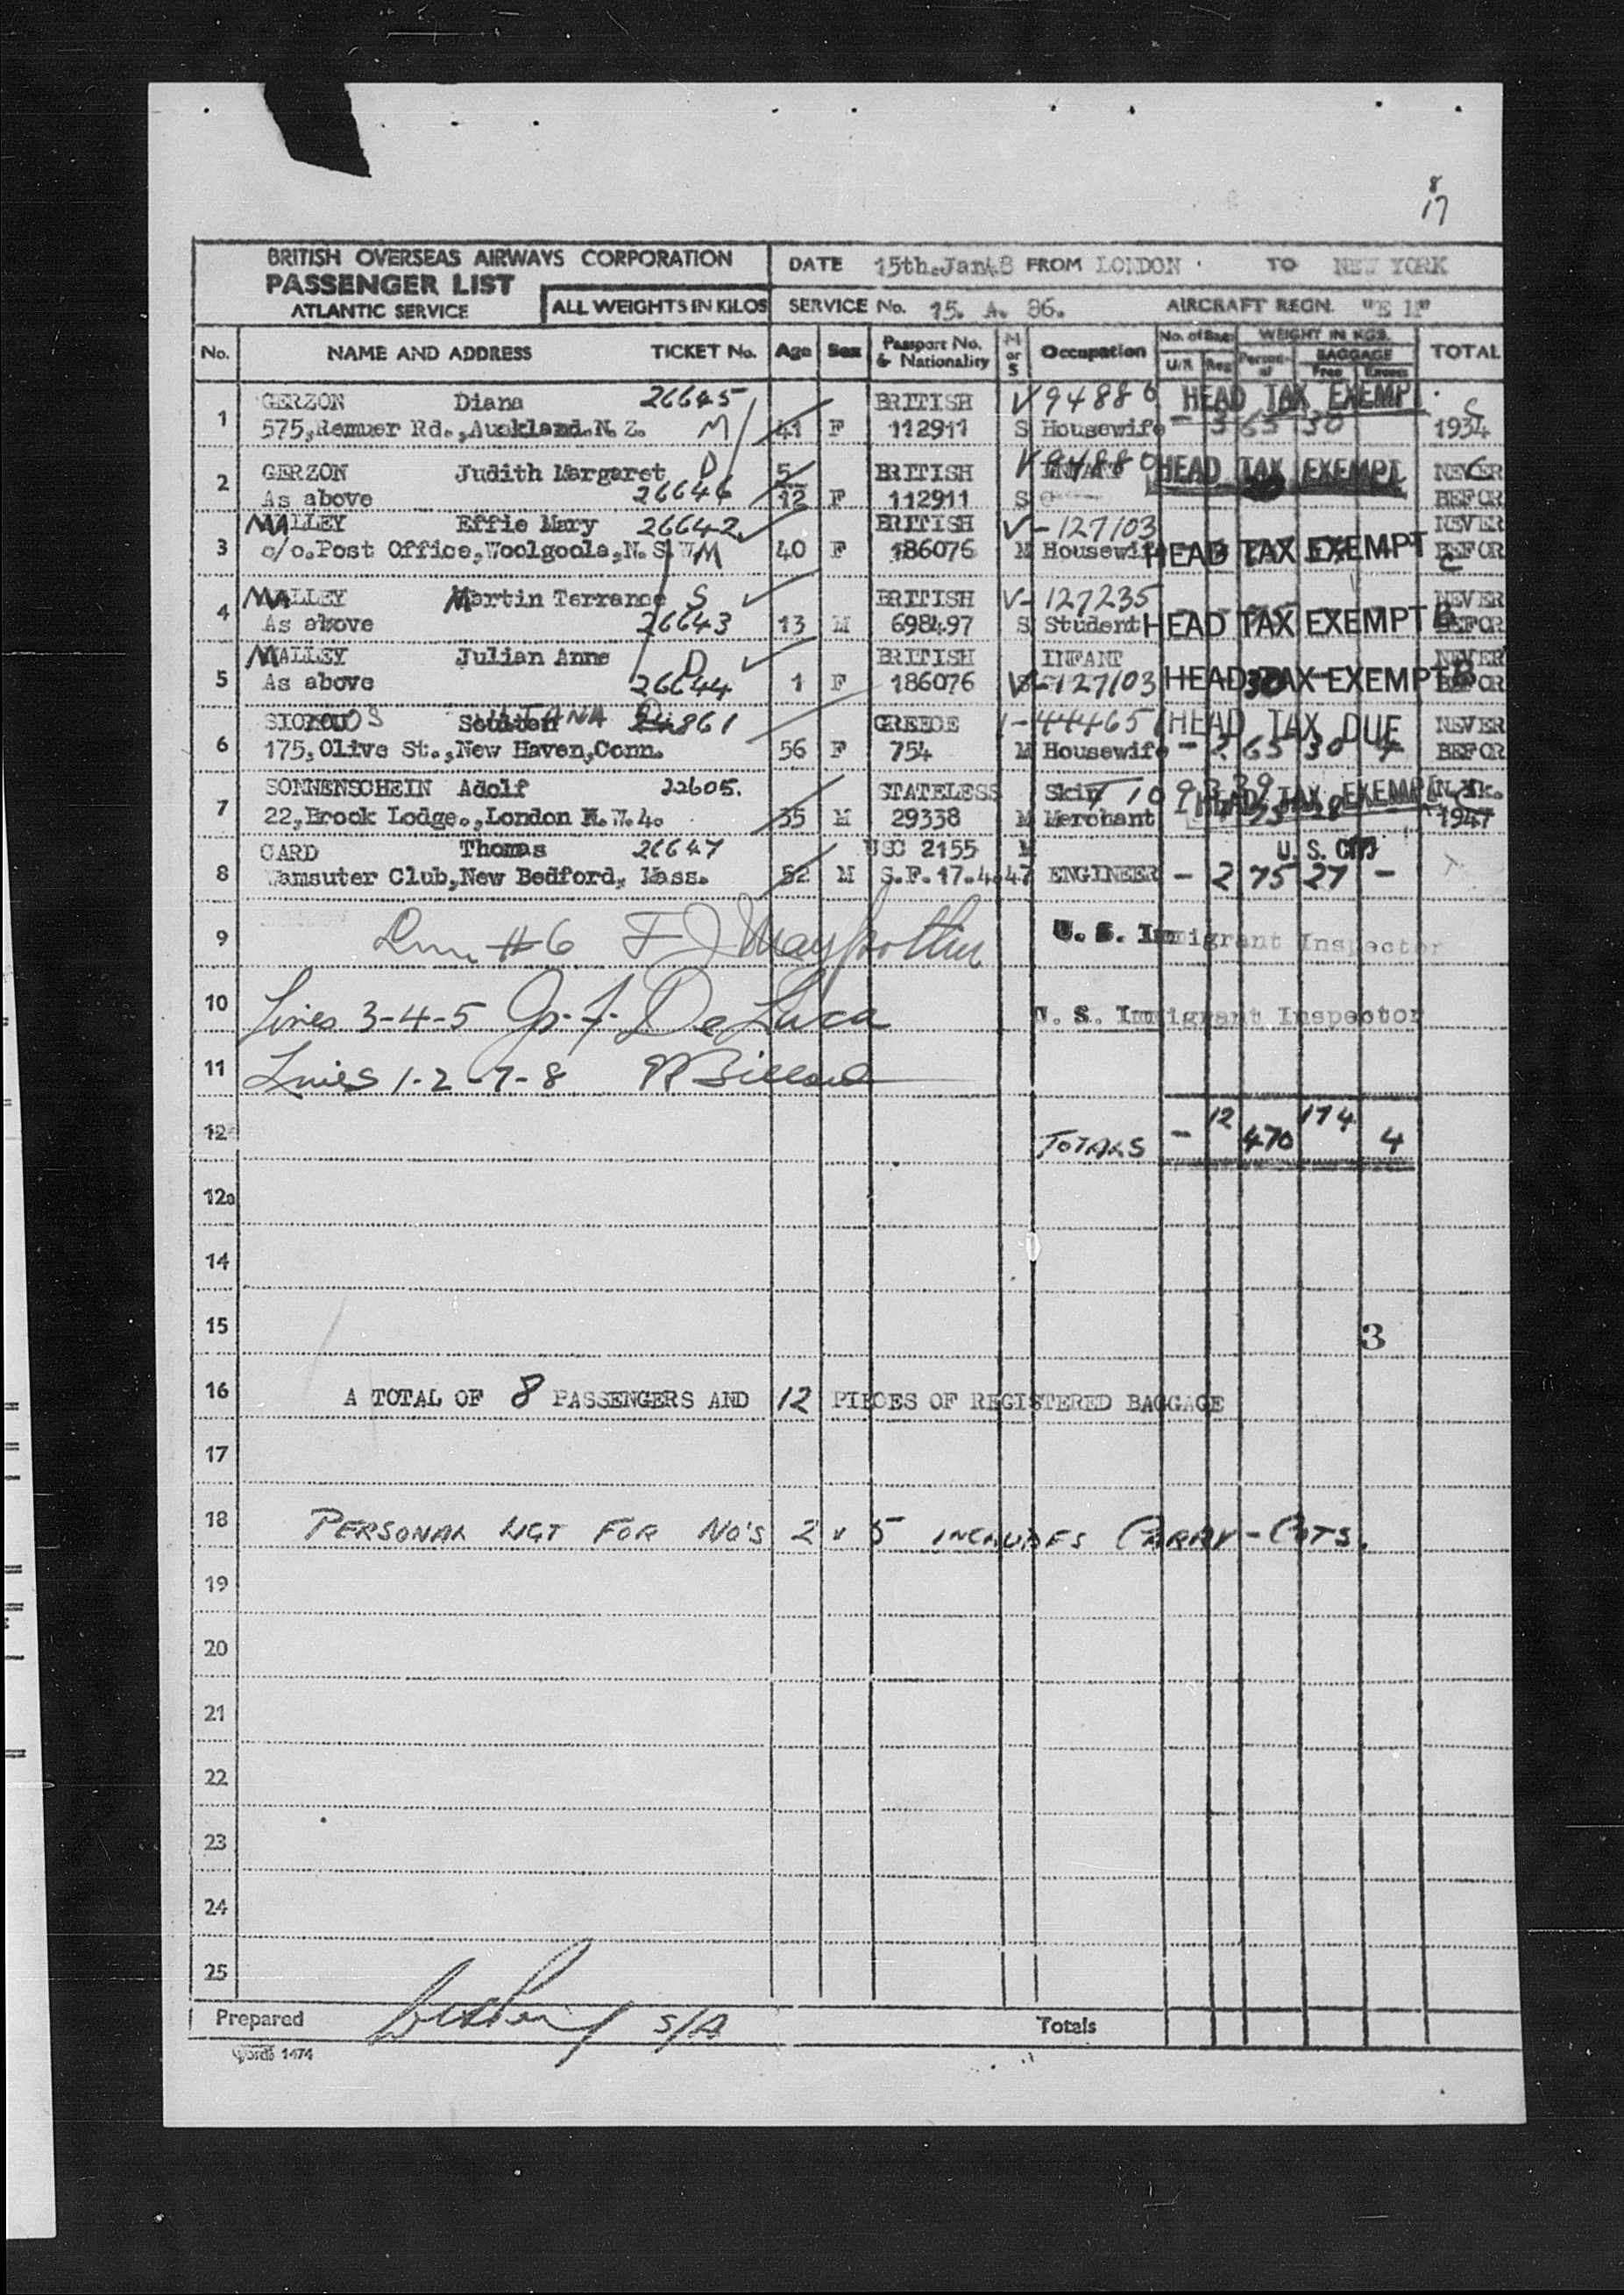 8
17
BRITISH OVERSEAS AIRWAYS CORPORATION
PASSENGER LIST
ATLANTIC SERVICE
ALL WEIGHTS IN KILOS
DATE 15th.Jan48 FROM LONDON TO NEW YORK
SERVICE No. 15. A. 86. AIRCRAFT REGN.
No. NAME AND ADDRESS TICKET No. Age Sex Passport No. & Nationality M or S Occupation No. of Bags U/R Reg WEIGHT IN KGS. Personal BAGGAGE Free Excess TOTAL
1 GERZON Diana 26645 BRITISH V 94880 HEAD TAX EXEMPT
575,Remuer Rd.,Auckland.N.Z. M 41 F 112911 S Housewife 65 30 1934
2 GERZON Judith Margaret D 5 BRITISH V 94880 INFANT HEAD TAX EXEMPT NEVER
As above 26646 12 F 112911 S BEFOR
3 MALLEY Effie Mary 26642 BRITISH V-127103 NEVER
c/o.Post Office,Woolgoola,N.S.W M 40 F 186076 M Housewife HEAD TAX EXEMPT BEFOR
C
4 MALLEY Martin Terrance S BRITISH V-127235 NEVER
As above 26643 13 M 698497 S Student HEAD TAX EXEMPT BEFOR
5 MALLEY Julian Anne D BRITISH INFANT NEVER
As above 26644 1 F 186076 V-127103 HEAD TAX EXEMPT BEFOR
6 SULTANA 24861 GREECE 1-444651 HEAD TAX DUE NEVER
175,Olive St.,New Haven,Conn. 56 F 754 M Housewife - 2 65 30 4 BEFOR
7 SONNENSCHEIN Adolf 22605. STATELESS Skin HEAD TAX EXEMPT N.Yk.
22,Brock Lodge.,London N.W.4. 35 M 29338 M Merchant 1947
8 CARD Thomas 26647 USC 2155 M U. S. CIT
Wamsuter Club,New Bedford, Mass. 52 M S.F.17.4.47 ENGINEER - 2 75 27 -
9 #6 U. S. Immigrant Inspector
10 Lines 3-4-5 De Luca U. S. Immigrant Inspector
11 Lines 1-2-7-8
12 TOTALS - 12 470 174 4
12a
14
15 3
16 A TOTAL OF 8 PASSENGERS AND 12 PIECES OF REGISTERED BAGGAGE
17
18 PERSONAL WGT FOR NO'S 2 & 5 INCLUDES CARRY-COTS.
19
20
21
22
23
24
25
Prepared S/A Totals
1474